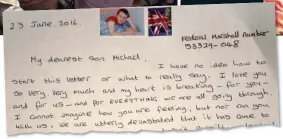 23 June 2016.
Federal Marshall number
53329-048
My dearest Son Michael,
I have no idea how to
start this letter or what to really say. I love you
so very very much and my heart is breaking - for you -
and for us - and for EVERYTHING we are all going through.
I cannot imagine how you are feeling, but nor can you
with us. We are utterly devastated that it has come to